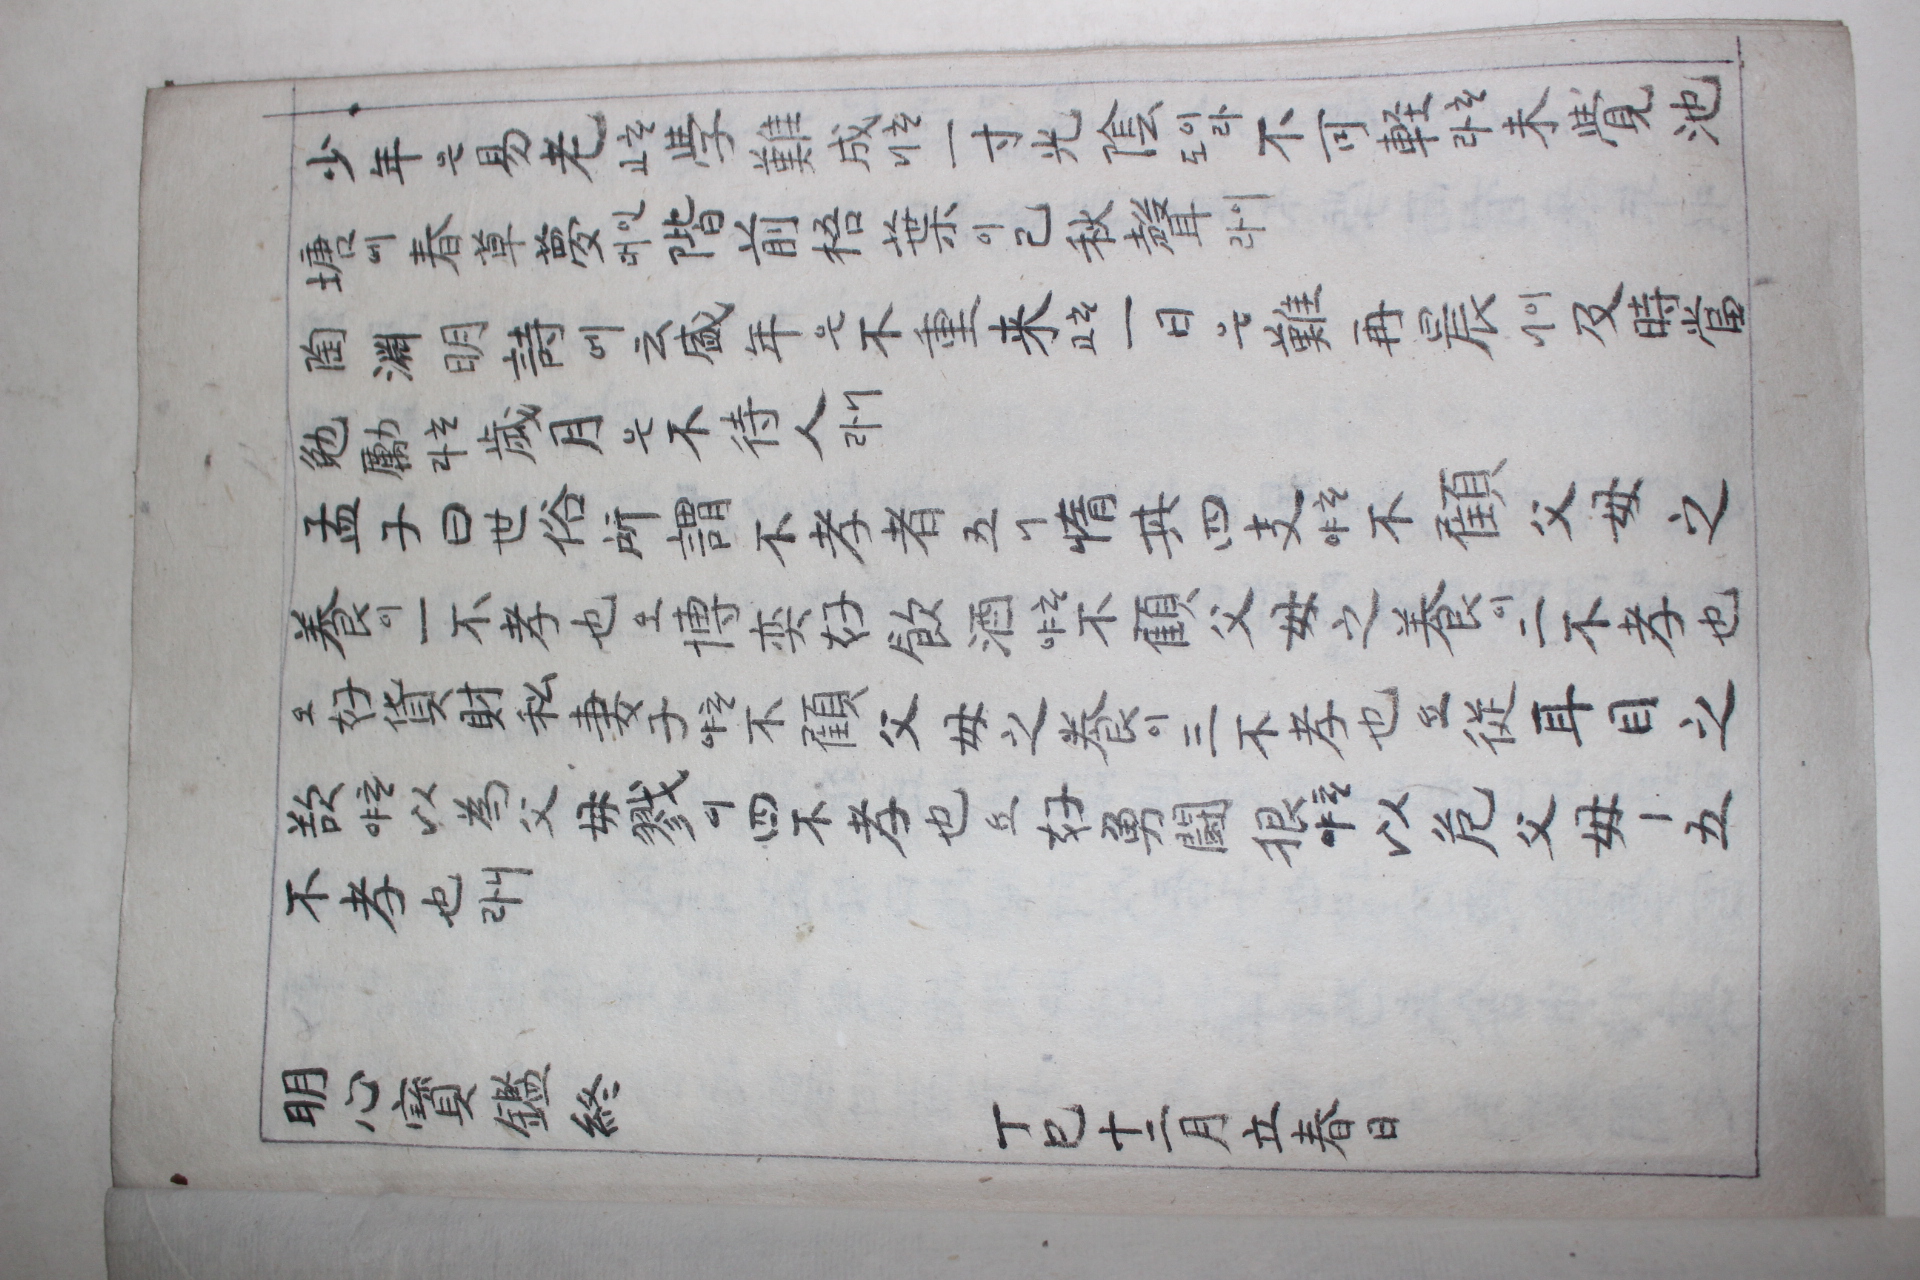 少年은易老ᄒᆞ고學難成ᄒᆞ니一寸光陰이라도不可軽ᄒᆞ라未覺池
塘에春草夢인데階前梧葉이已秋聲이라
陶淵明詩에云盛年은不重来ᄒᆞ고一日은難再晨이니及時當
勉勵ᄒᆞ라歲月은不待人니라
孟子曰世俗所謂不孝者五니惰其四支ᄒᆞ야不顧父母之
養이一不孝也오博奕好飮酒ᄒᆞ야不顧父母之養이二不孝也
오好貨財私妻子ᄒᆞ야不顧父母之養이三不孝也요從耳目之
欲ᄒᆞ야以為父母戮이四不孝也요好勇鬪狠ᄒᆞ야以危父母ㅣ五
不孝也니라
明心寶鑑終
丁巳十二月立春日